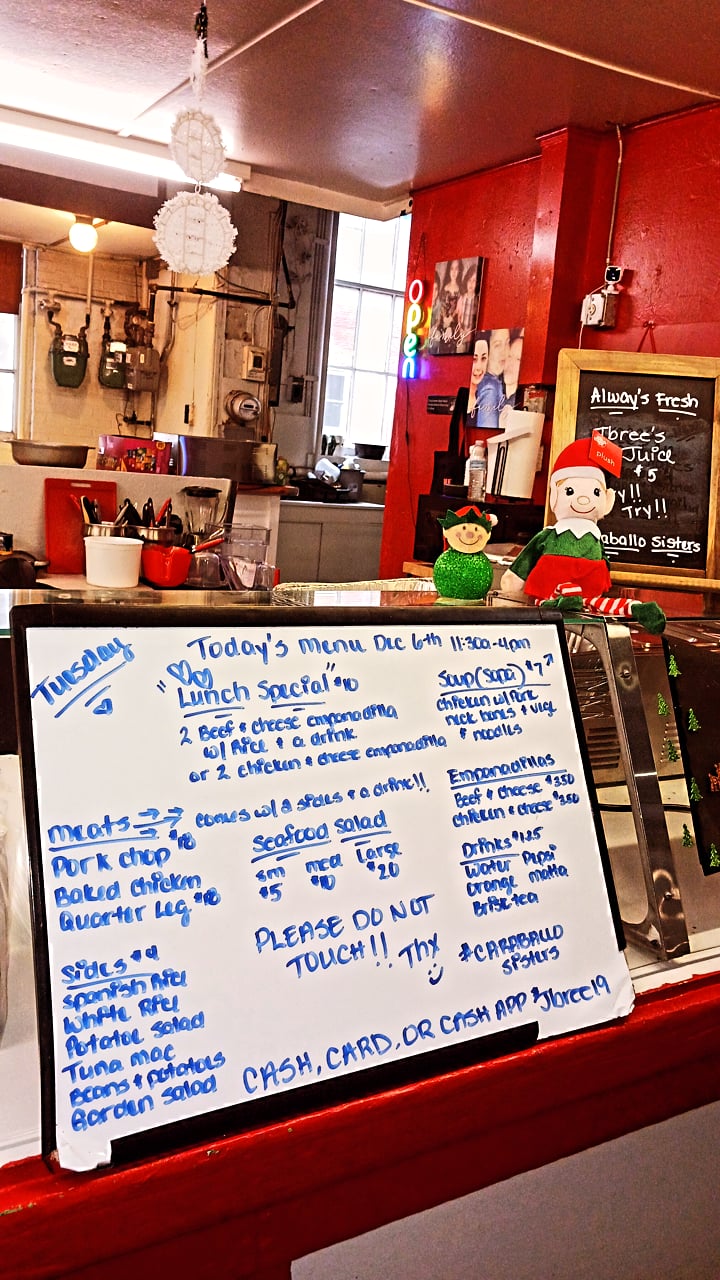 open
family
family
Alway's Fresh
Jbree's
Juice
$5
y!!
Try!!
aballo Sisters
plush
Tuesday
Today's menu Dec 6th 11:30a-4pm
"Lunch Special" $10
2 Beef & cheese empanadilla
w/ Rice & a drink
or 2 chicken & cheese empanadilla
Soup (sopa) $7
chicken w/ Pork
neck bones & vige
& noodles
Empanadillas
Beef & cheese $3.50
chicken & cheese $3.50
Drinks $1.25
Water Pepsi
orange malta
Brisk tea
meats → → comes w/ 2 sides & a drink!!
Pork chop $18
Baked chicken
Quarter Leg $18
Seafood Salad
sm med Large
$5 $10 $20
Sides $4
Spanish Rice
White Rice
Potatoe salad
Tuna mac
Beans & potatoes
Garden salad
PLEASE DO NOT
TOUCH!! Thx
#CARABALLO
Sisters
CASH, CARD, OR CASH APP $Jbree19